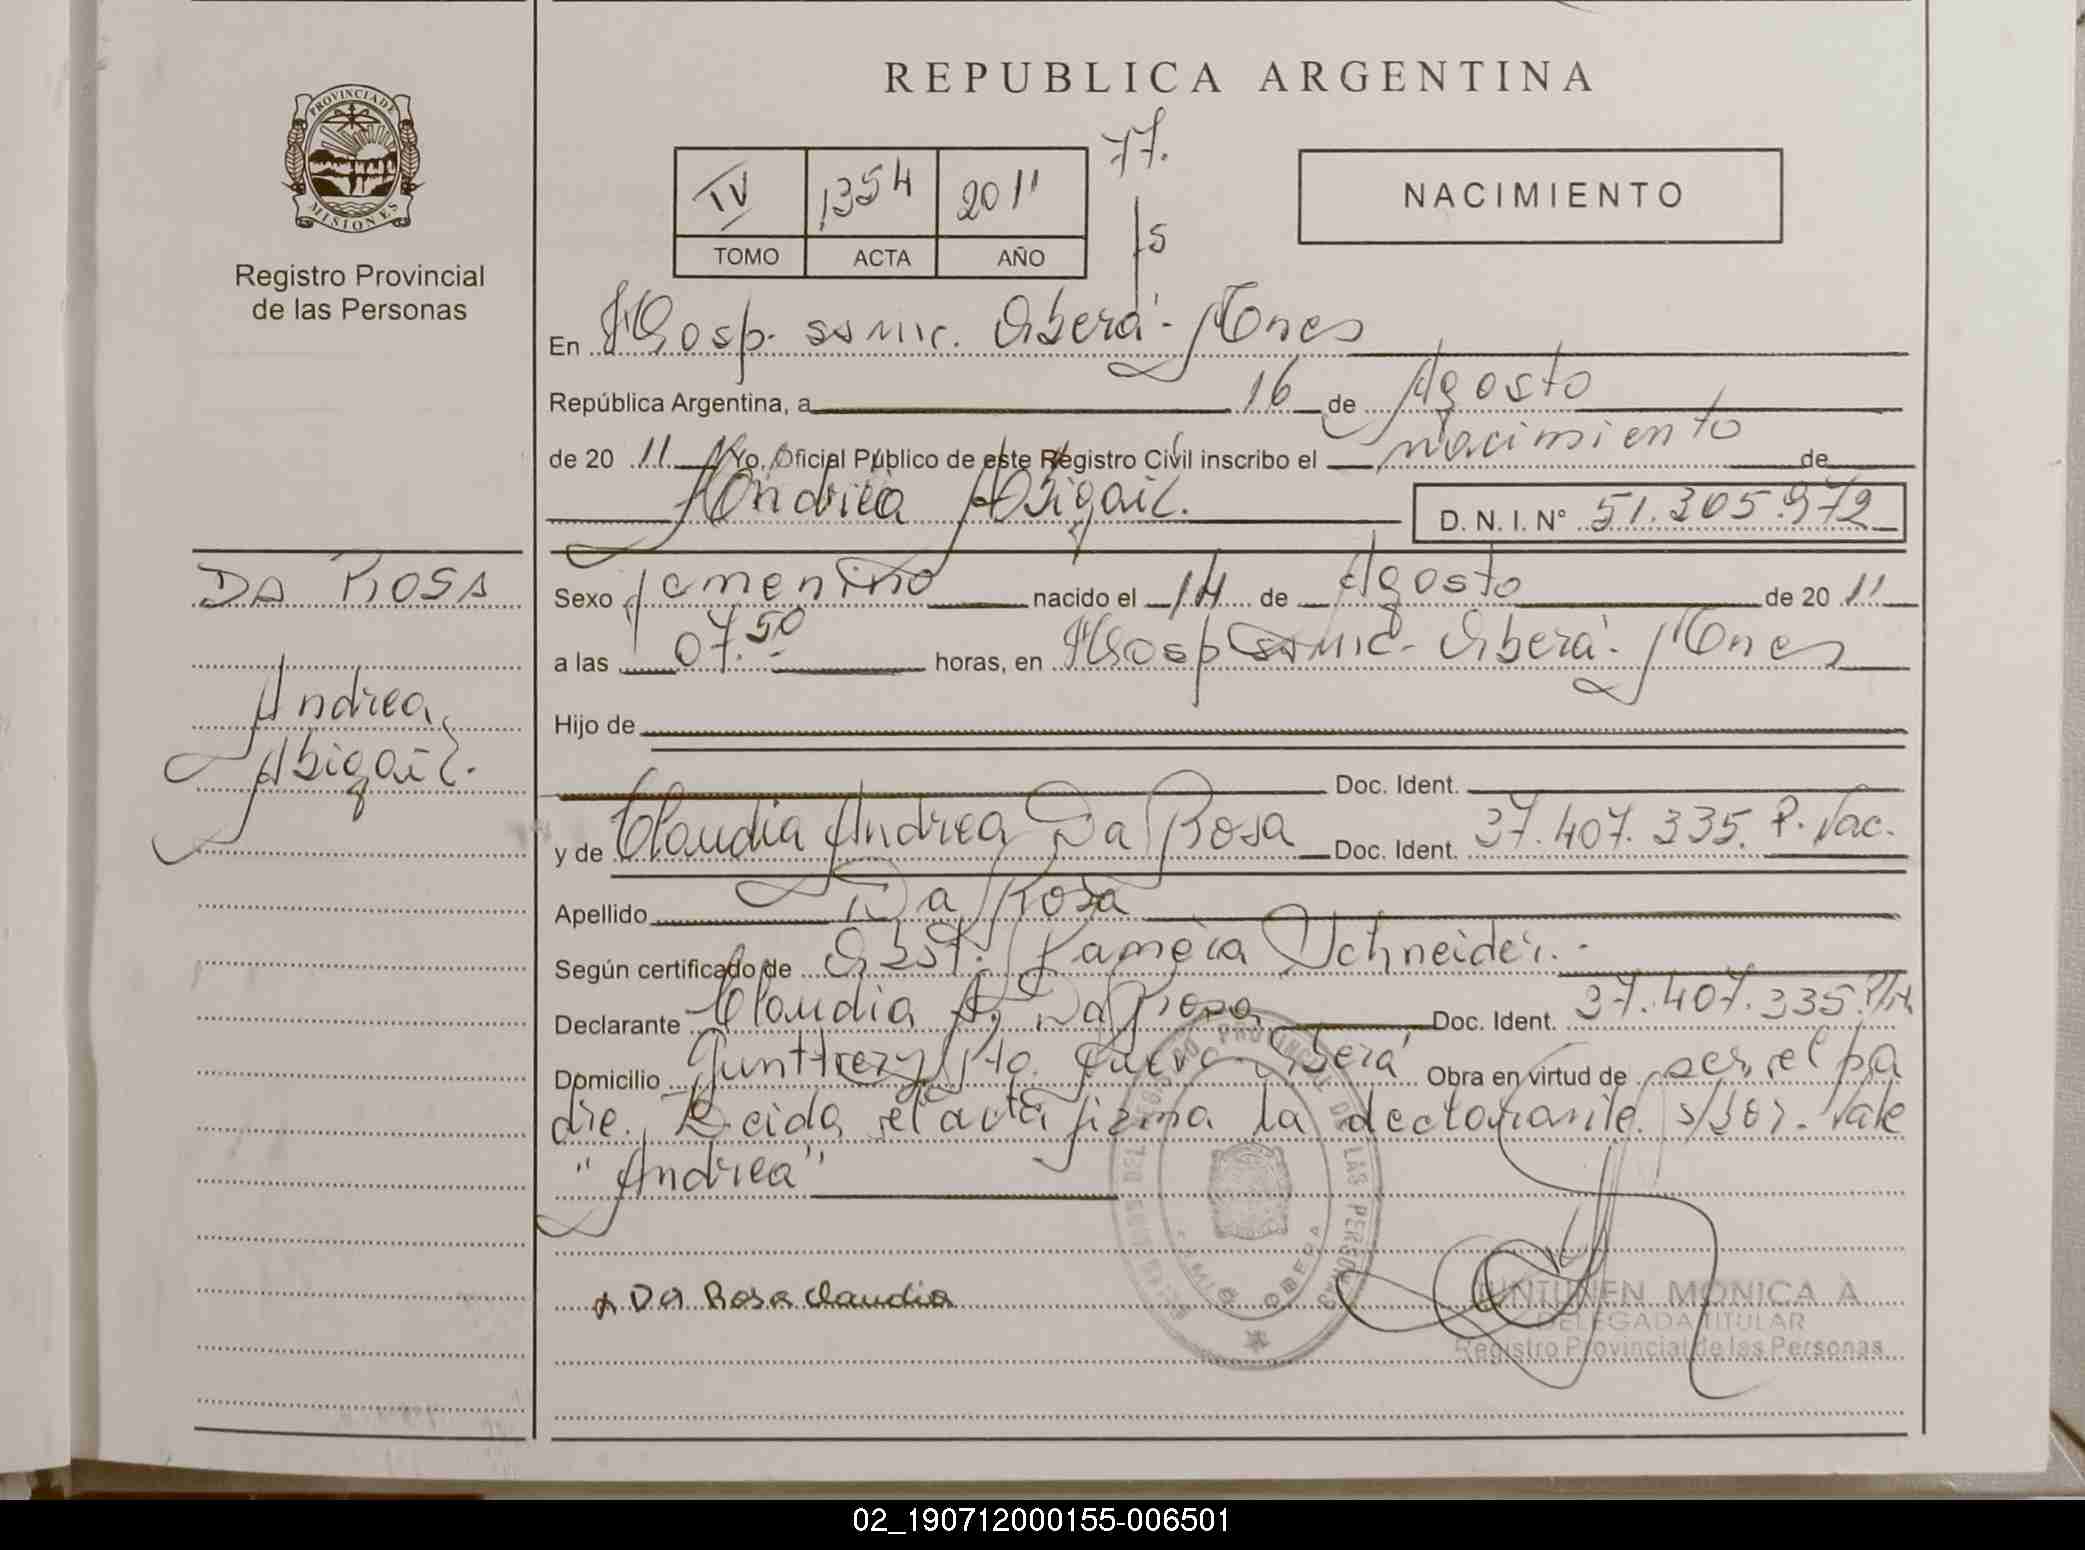 REPUBLICA ARGENTINA
PROVINCIA DE
MISIONES
Registro Provincial
de las Personas
IV 1354 2011
TOMO ACTA AÑO
77.
NACIMIENTO
En Hosp. ssmic. Oberá - Mnes
República Argentina, a 16 de Agosto
de 20 11 Yo, Oficial Público de este Registro Civil inscribo el nacimiento de
Andrea Abigail. D. N. I. N° 51.305.972
DA ROSA
Andrea
Abigail.
Sexo femenino nacido el 14 de Agosto de 20 11
a las 07.50 horas, en Hosp ssmic - Oberá - Mnes
Hijo de
Doc. Ident.
y de Claudia Andrea Da Rosa Doc. Ident. 37.407.335. P. Nac.
Apellido Da Rosa
Según certificado de Obst. Pamela Schneider.-
Declarante Claudia A. Da Rosa Doc. Ident. 37.407.335.
Domicilio Oberá Obra en virtud de ser el pa
dre. Leida el acta firma la declarante. s/bor. Vale
"Andrea"
Da Rosa Claudia
REGISTRO PROVINCIAL DE LAS PERSONAS
OBERA
MONICA A
DELEGADA TITULAR
Registro Provincial de las Personas
02_190712000155-006501